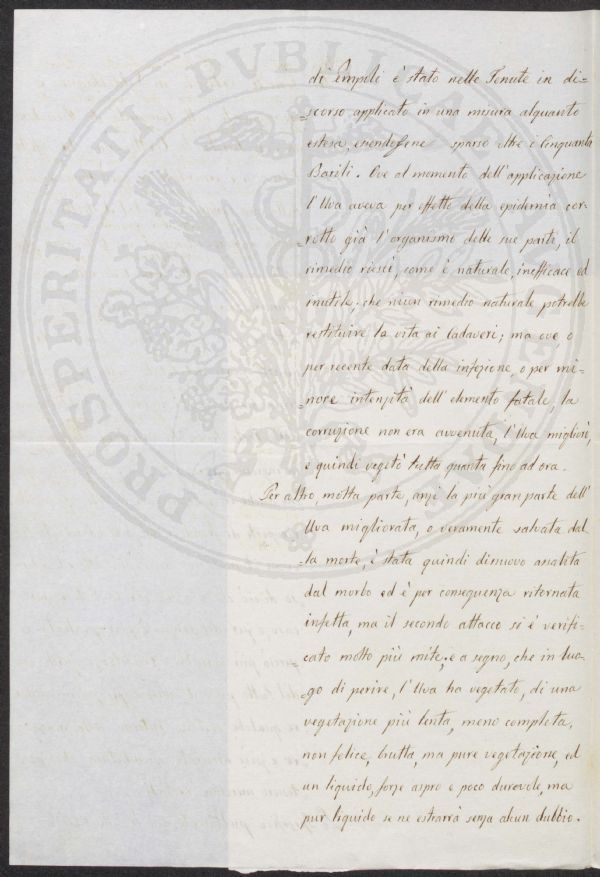 PROSPERITATI PVBLICAE AVGENDAE
di Empoli è stato nelle Tenute in di=
=scorso applicato in una misura alquanto
estesa, essendosene sparso oltre i Cinquanta
Barili. Ove al momento dell'applicazione
l'Uva aveva per effetto della epidemia cor=
rotto già l'organismo delle sue parti, il
rimedio riescì, come è naturale, inefficace ed
inutile; che niun rimedio naturale potrebbe
restituire la vita ai Cadaveri; ma ove, o
per recente data della infezione, o per mi=
=nore intensità dell'elemento fatale, la
corruzione non era avvenuta, l'Uva migliorò,
e quindi vegetò tutta quanta fino ad ora.
Per altro, molta parte, anzi la più gran parte dell'
Uva migliorata, o veramente salvata dal=
=la morte, è stata quindi dinuovo assalita
dal morbo ed è per conseguenza ritornata
infetta, ma il secondo attacco si è verifi=
cato molto più mite; e a segno, che in luo=
=go di perire, l'Uva ha vegetato, di una
vegetazione più lenta, meno completa,
non felice, brutta, ma pure vegetazione, ed
un liquido, forse aspro e poco durevole, ma
pur liquido se ne estrarrà senza alcun dubbio.